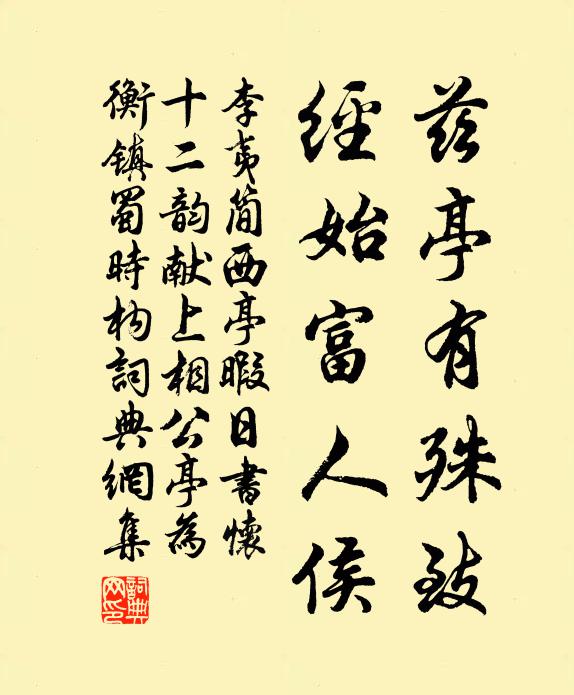 茲亭有殊致
經始富人侯
李夷简西亭暇日書懷
十二韵献上相公亭為
衡鎮蜀時构詞典網集